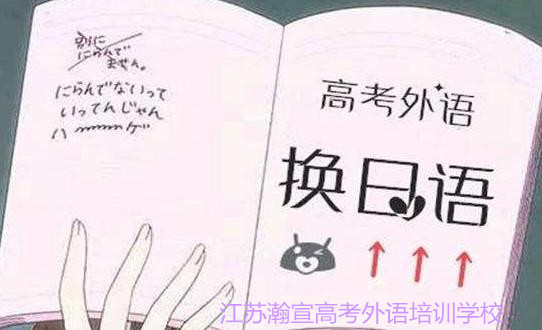 別に
にらんで
ません。
にらんでないって
いってんじゃん
ハ ゲ
高考外语
换日语
↑↑↑
江苏瀚宣高考外语培训学校